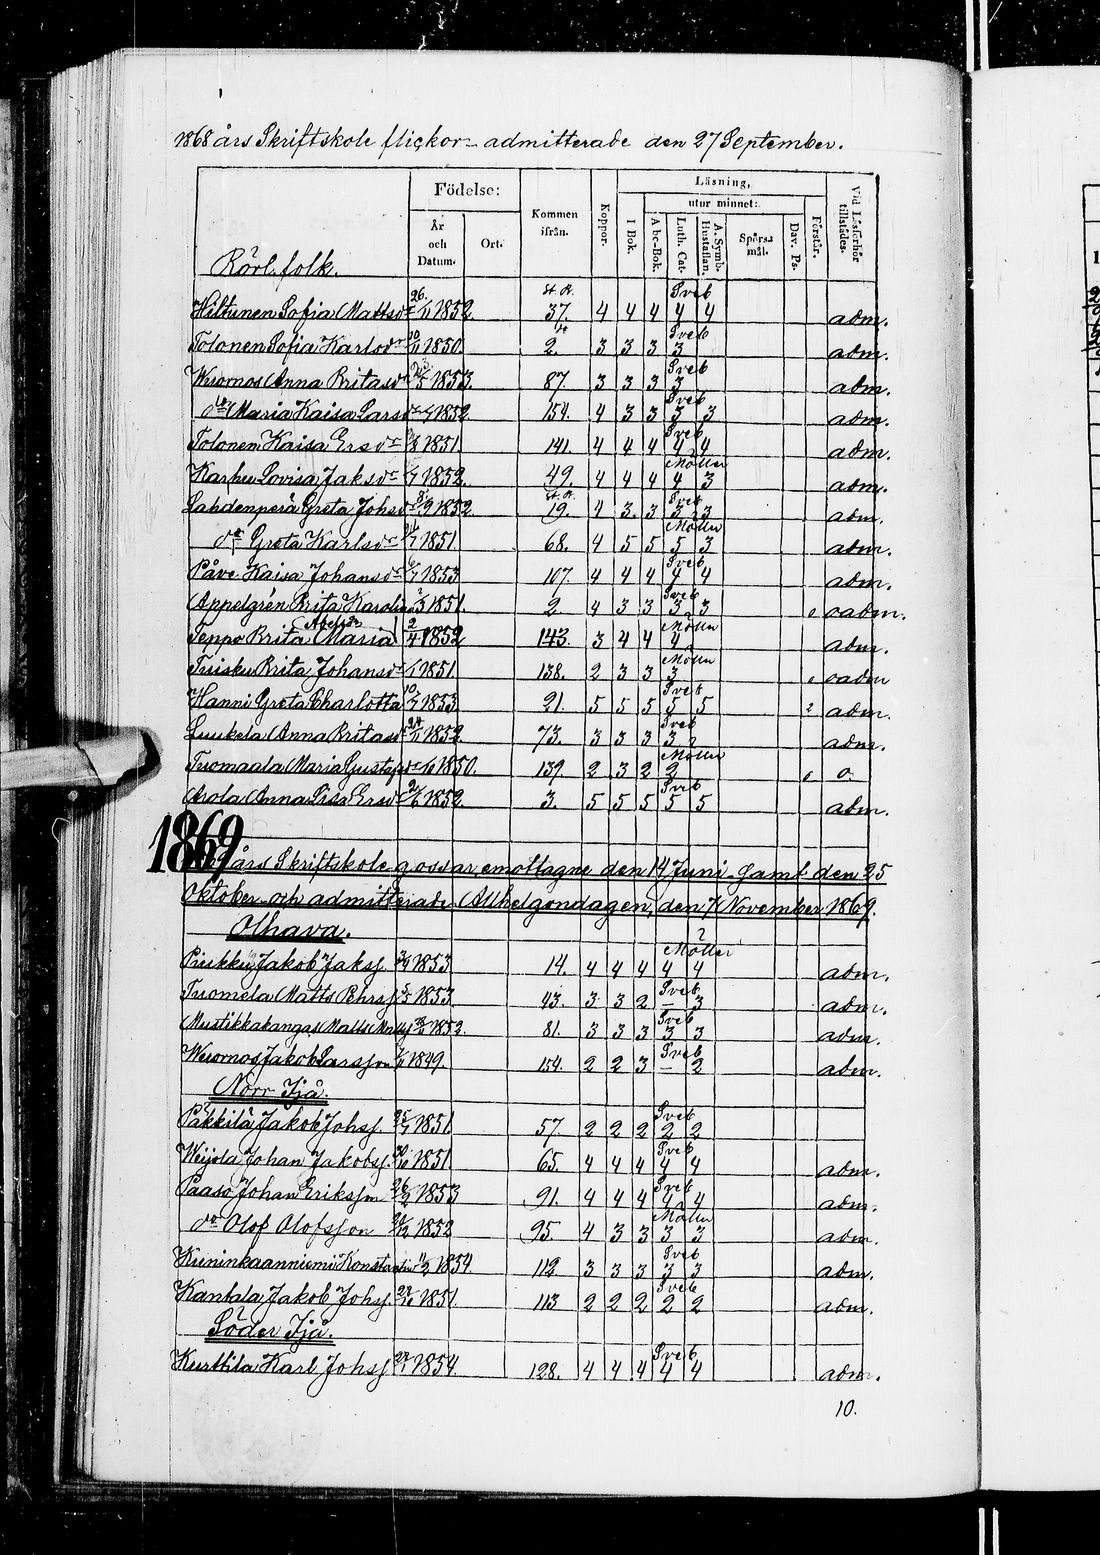 1868 års Skriftskole flickor admitterade den 27 September.
Födelse: Läsning,
utur minnet:
År och Datum. Ort. Kommen ifrån. Koppor. I Bok. Abc-Bok. Luth. Cat. A. Symb. Hustaflan. Spörsmål. Dav. Ps. Förstår. Vid Läsförhör tillstädes.
Rörl. folk.
Hiltunen Sofia Mattsdr 26 1852 37. 4 4 4 Sveb 4 4 adm.
Tolonen Sofia Karlsdr 1850 2. 3 3 3 Sveb 3 adm.
Wuornos Anna Britasdr 1853 87. 3 3 3 Sveb 3 adm.
do Maria Kaisa Larsdr 1852 154. 4 3 3 Sveb 3 3 adm.
Tolonen Kaisa Ersdr 1851 141. 4 4 4 Sveb 4 4 adm.
Karhu Lovisa Jaksdr 1852. 49. 4 4 4 Möller 4 3 adm.
Lahdenperä Greta Johsdr 1852 19. 4 3. 3 Sveb 3 3 adm.
do Greta Karlsdr 1851. 68. 4 5 5 Möller 5 3 adm.
Påve Kaisa Johansdr 1853 107. 4 4 4 Sveb 4 4 adm.
Appelgrén Brita Karolina 1851. 2. 4 3 3 Sveb 3 3 0 oadm.
Teppo Brita Maria Abelsdr 2/4 1852 143. 3 4 4 Möller 4 adm.
Tuisku Brita Johansdr 1851. 138. 2 3 3 Möller 3 0 oadm
Hanni Greta Charlotta 1853 21. 5 5 5 Sveb 5 5 2 adm.
Luukela Anna Britasdr 1852. 73. 3 3 3 Sveb 3 2 adm.
Tuomaala Maria Gustafsdr 1850. 139. 2 3 2 Möller 2 0 o
Arola Anna Lisa Ersdr 1852. 3. 5 5 5 Sveb 5 5 adm.
1869
års Skriftskole gossar emottagne den 14 Juni samt den 25
Oktober och admitterade Allhelgondagen, den 7 November 1869.
Olhava.
Pirkku Jakob Jaksj. 1853 14. 4 4 4 Möller 4 4 adm.
Tuomela Matts Pehrsj 1853 43. 3 3 2 Sveb – 3 adm.
Mustikkakangas Matts 1852. 81. 3 3 3 Sveb 3 3 adm.
Wuornos Jakob Larsson 1849. 154. 2 2 3 Sveb – 2 adm.
Norr Ijå.
Päkkilä Jakob Johsj. 1851. 57. 2 2 2 Sveb 2 2
Weijola Johan Jakobsj. 1851 65. 4 4 4 Sveb 4 4 adm.
Paaso Johan Eriksson 1853 91. 4 4 4 Sveb 4 4 adm.
do Olof Olofsson 1852 95. 4 3 3 Möller 3 3 adm.
Kuninkaanniemi Konstantin 1854. 112 3 3 3 Sveb 3 3 adm.
Kantala Jakob Johsj. 1851 113 2 2 2 Sveb 2 2 adm.
Söder Ijå.
Kurttila Karl Johsj 1854. 128. 4 4 4 Sveb 4 4 adm.
10.